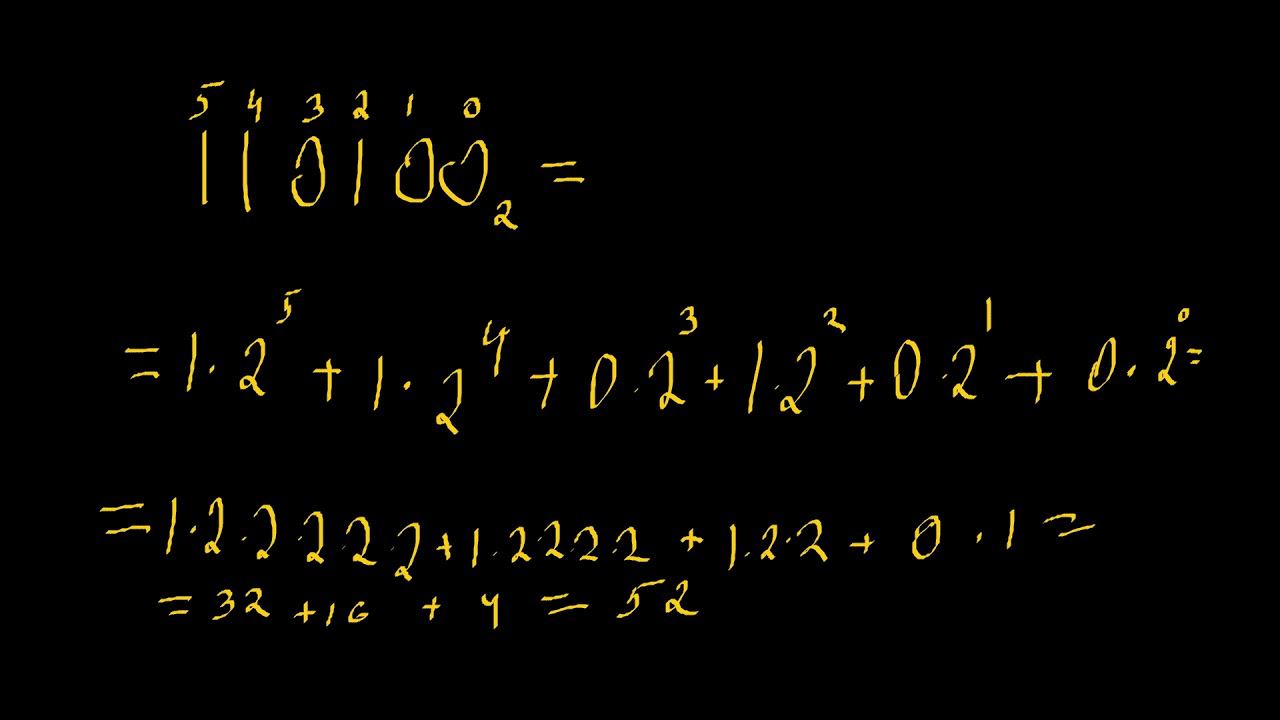 5 4 3 2 1 0
110100₂ =
= 1·2⁵ + 1·2⁴ + 0·2³ + 1·2² + 0·2¹ + 0·2⁰ =
= 1·2·2·2·2·2 + 1·2·2·2·2 + 1·2·2 + 0·1 =
= 32 + 16 + 4 = 52